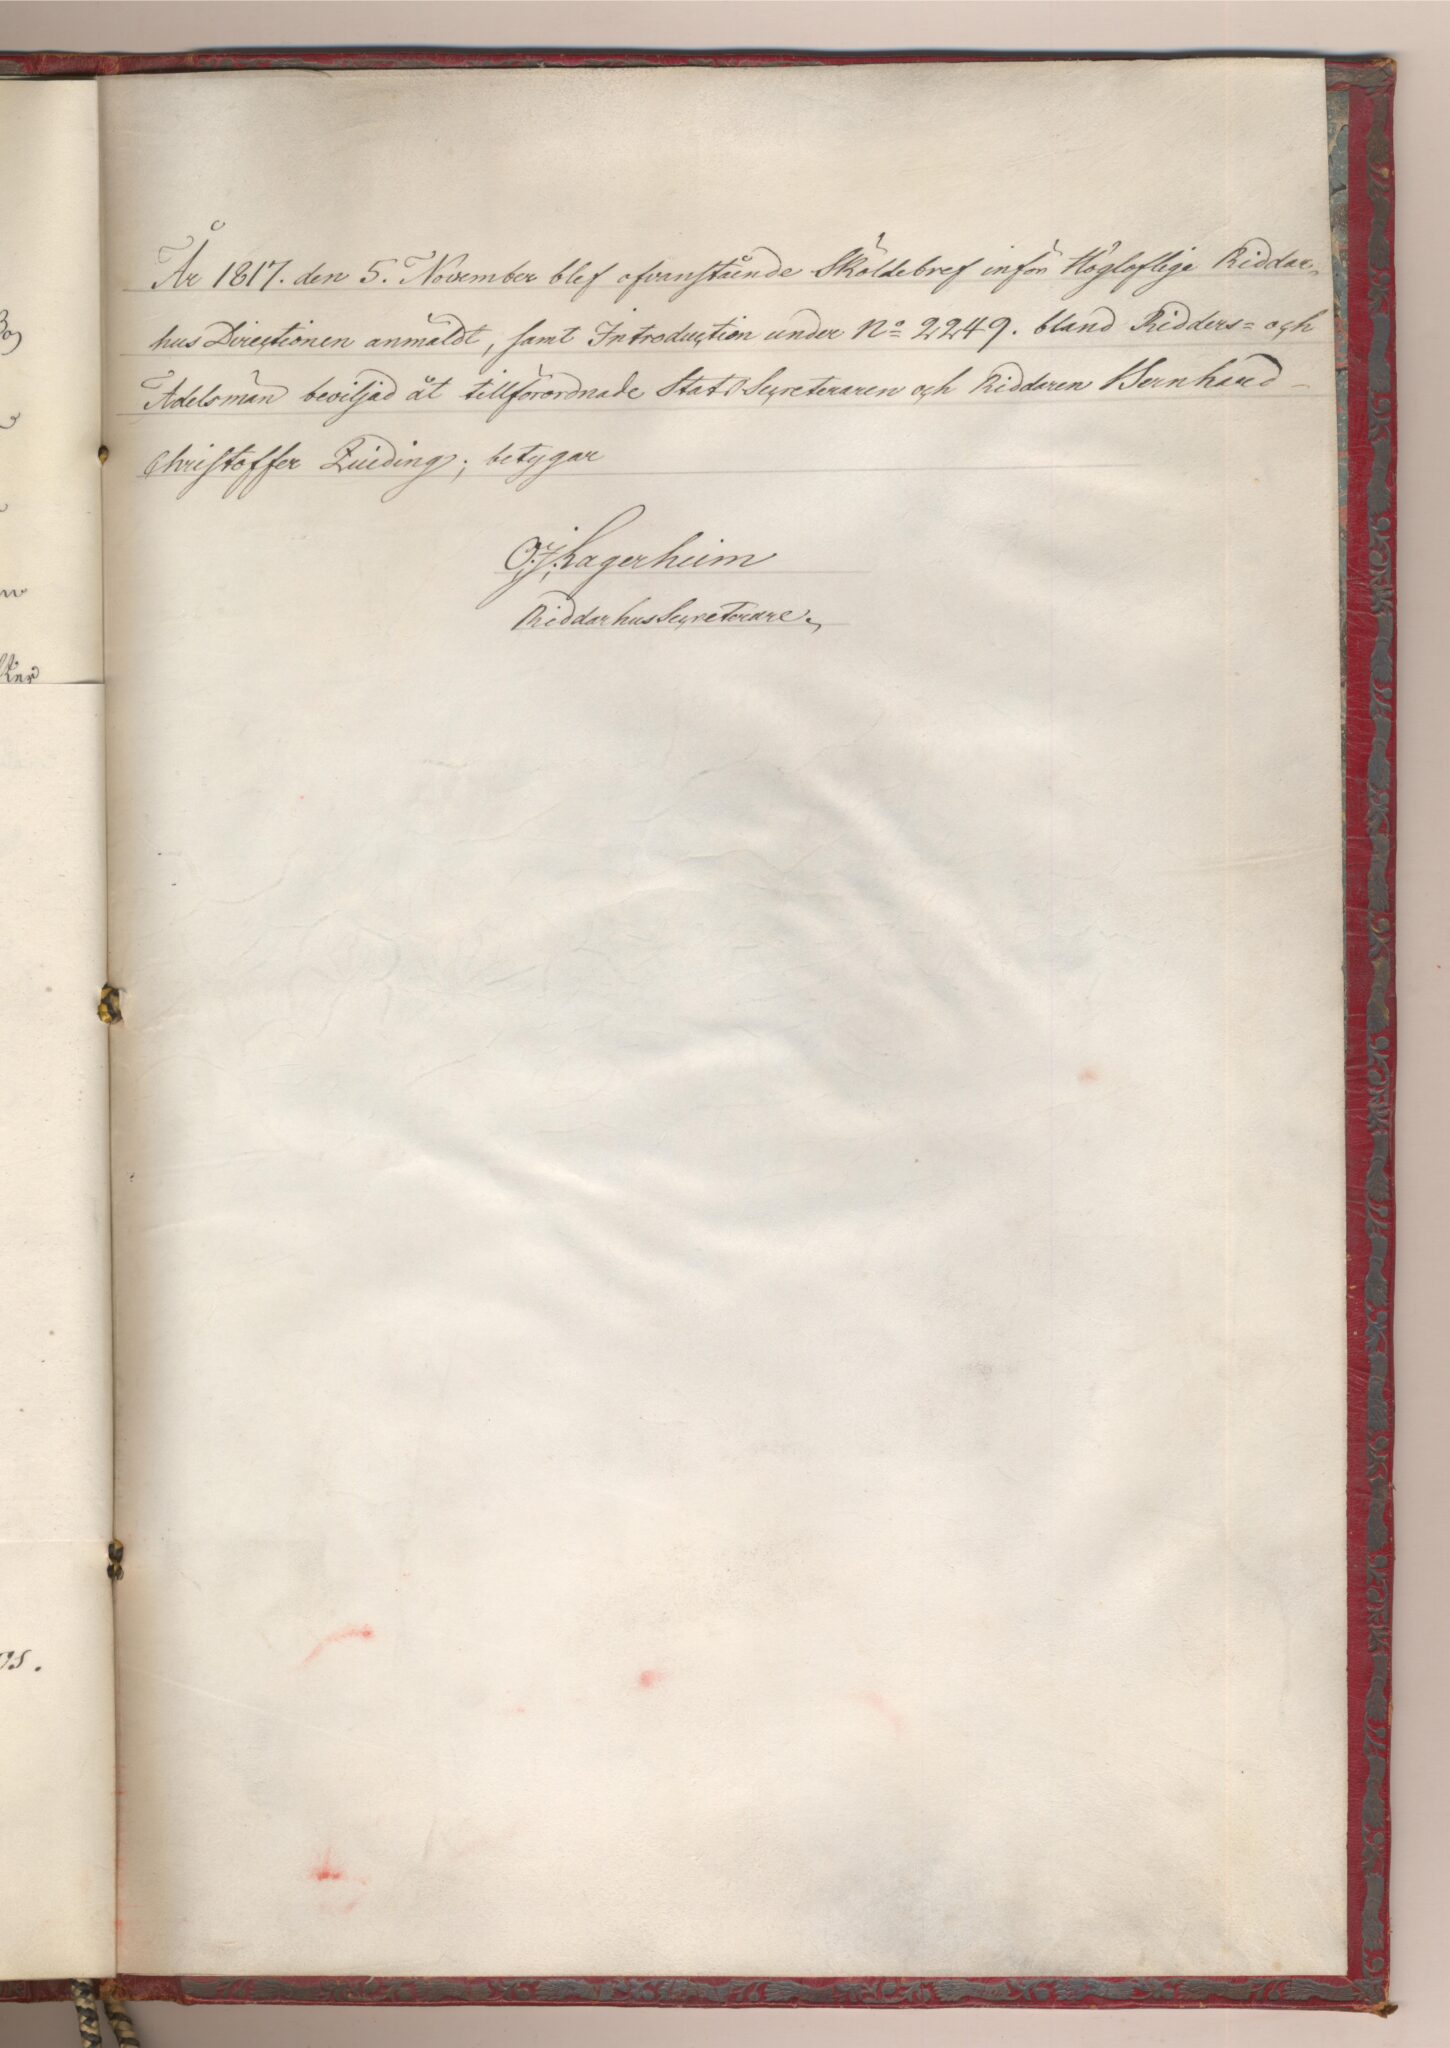 År 1817. den 5. November blef ofvanstående Sköldebref inför Höglofliga Riddar-
hus Directionen anmäldt, samt Introduction under No 2249. bland Ridders= och
Adelsmän beviljad åt tillförordnade Stats Secreteraren och Riddaren Bernhard
Christoffer Zueding; betygar
O. J. Lagerheim
Riddarhus Secreterare.
os.